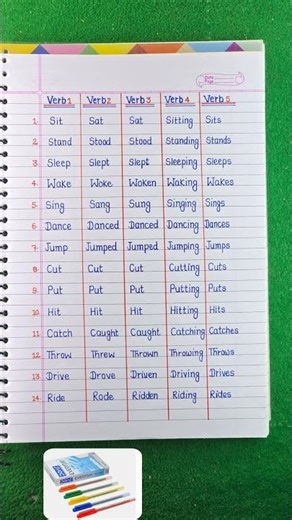 Verb 1 Verb 2 Verb 3 Verb 4 Verb 5
1. Sit Sat Sat Sitting Sits
2. Stand Stood Stood Standing Stands
3. Sleep Slept Slept Sleeping Sleeps
4. Wake Woke Woken Waking Wakes
5. Sing Sang Sung Singing Sings
6. Dance Danced Danced Dancing Dances
7. Jump Jumped Jumped Jumping Jumps
8. Cut Cut Cut Cutting Cuts
9. Put Put Put Putting Puts
10. Hit Hit Hit Hitting Hits
11. Catch Caught Caught Catching Catches
12. Throw Threw Thrown Throwing Throws
13. Drive Drove Driven Driving Drives
14. Ride Rode Ridden Riding Rides